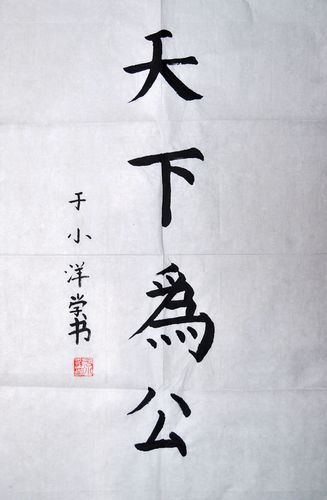 天下為公
于小洋学书